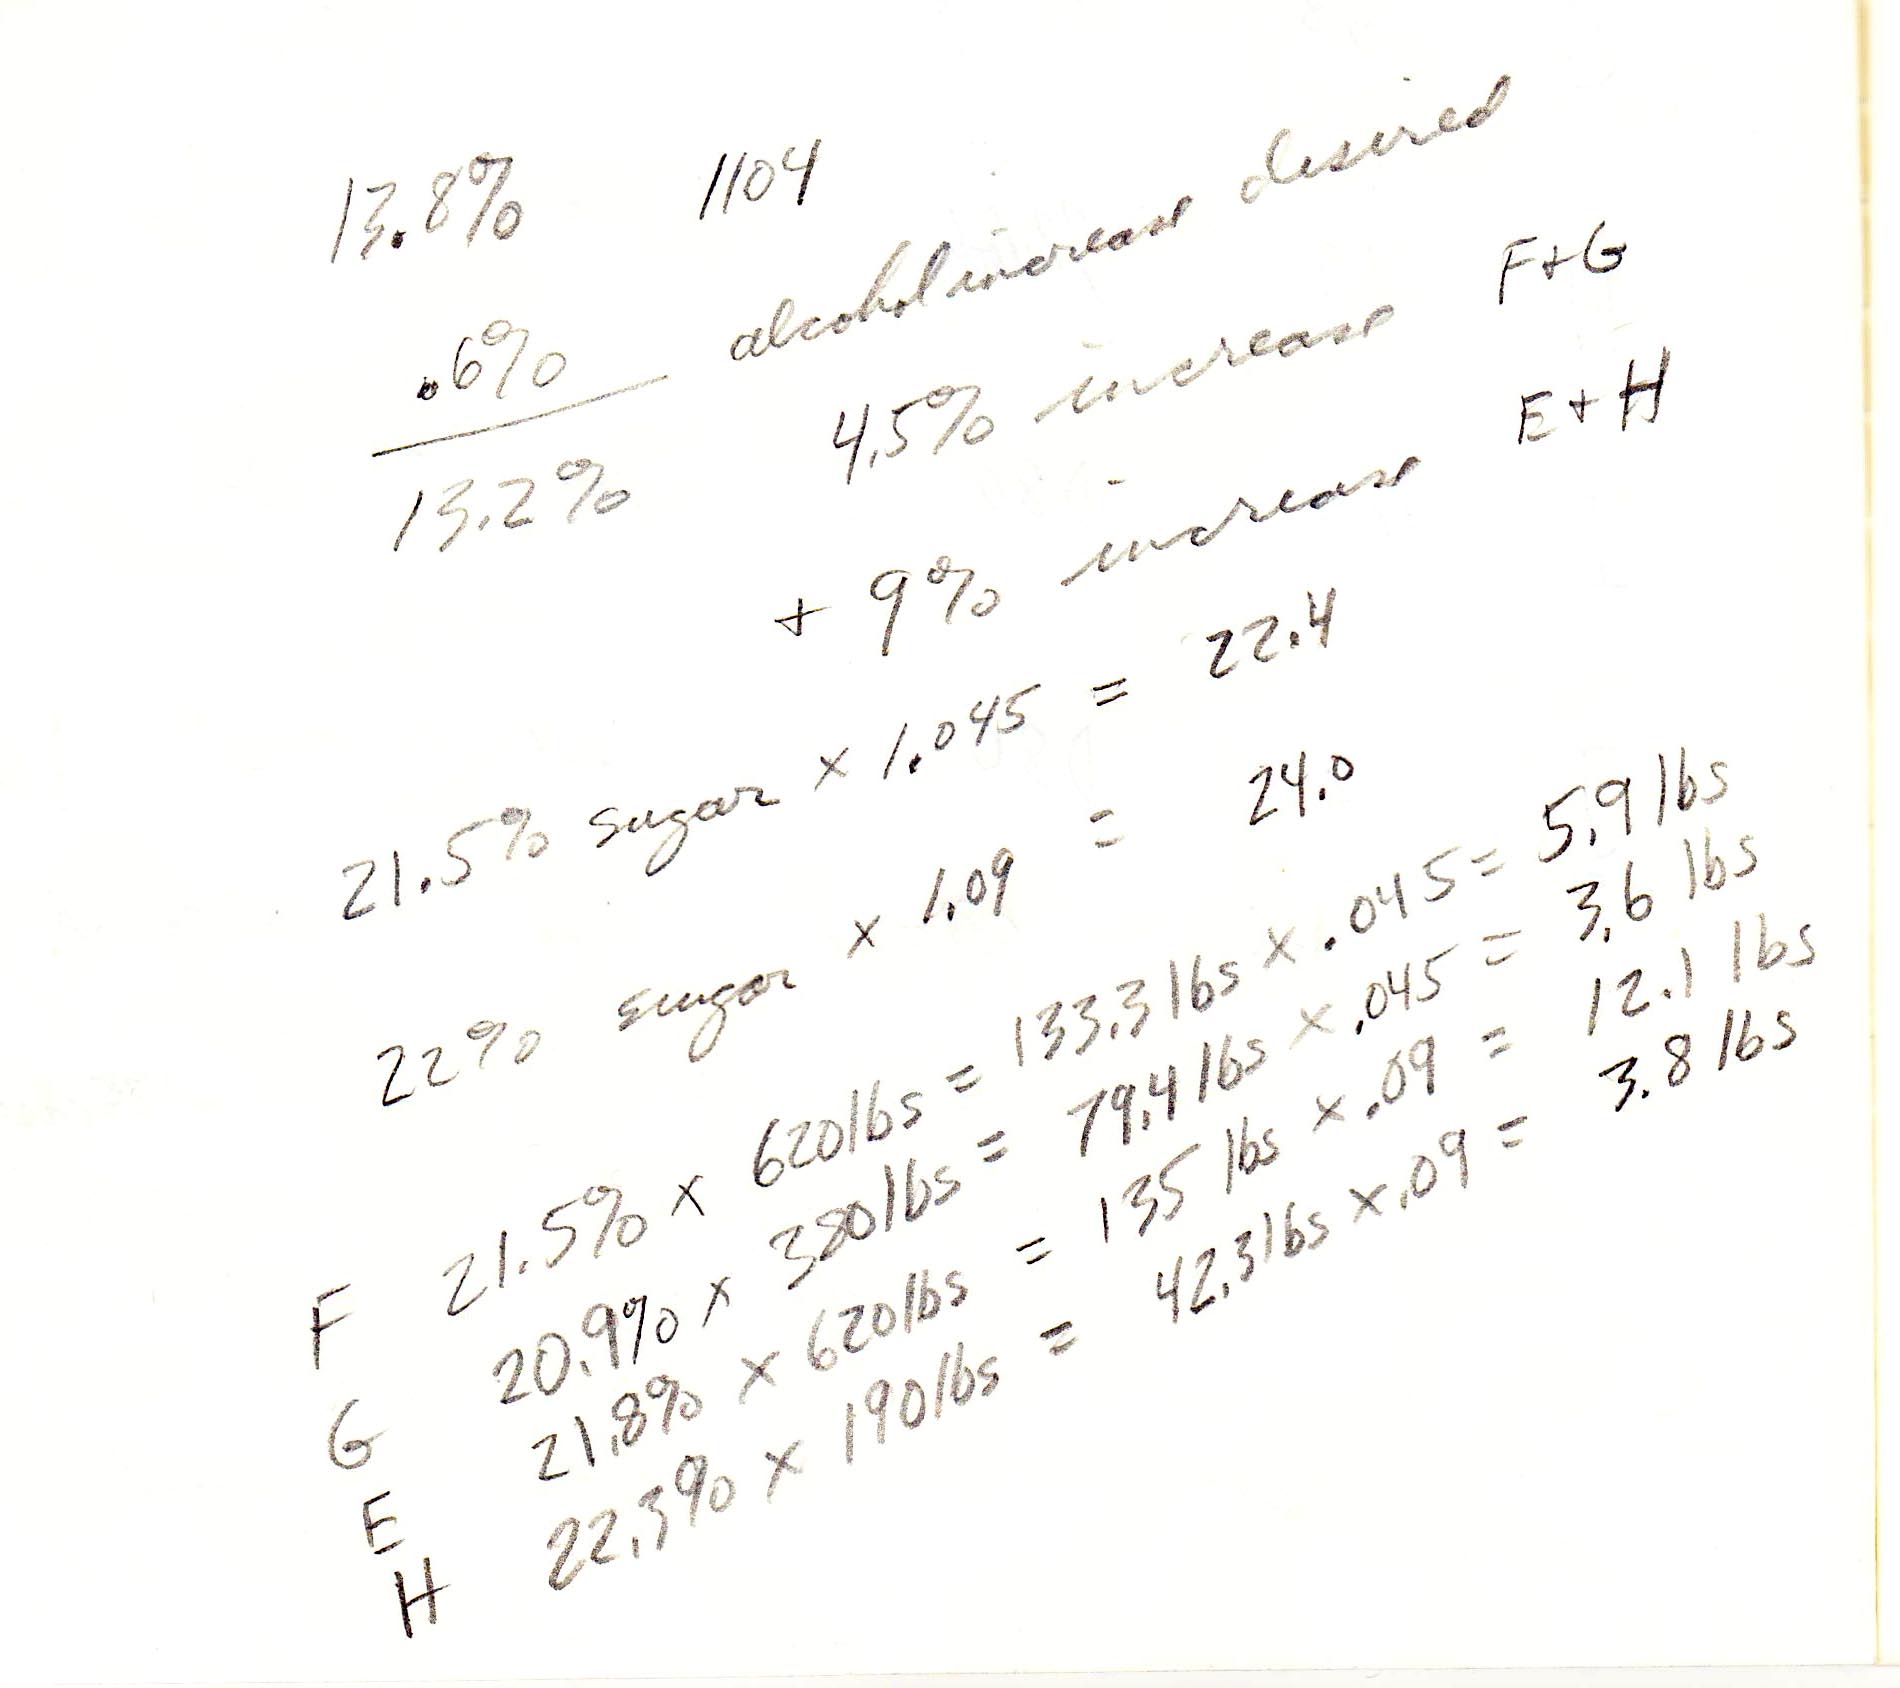 13.8% 1104
.6% alcohol increase desired
13.2% 4.5% increase F+G
+ 9% increase E+H
21.5% sugar x 1.045 = 22.4
22% sugar x 1.09 = 24.0
F 21.5% x 620lbs = 133.3lbs x .045 = 5.9 lbs
G 20.9% x 380lbs = 79.4lbs x .045 = 3.6 lbs
E 21.8% x 620lbs = 135 lbs x .09 = 12.1 lbs
H 22.3% x 190lbs = 42.3lbs x .09 = 3.8 lbs